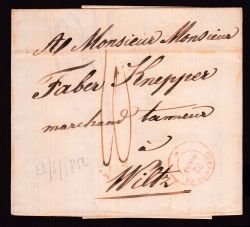 A Monsieur Monsieur
Faber Knepper
marchand tanneur
à
Wiltz
10
22/3/1852